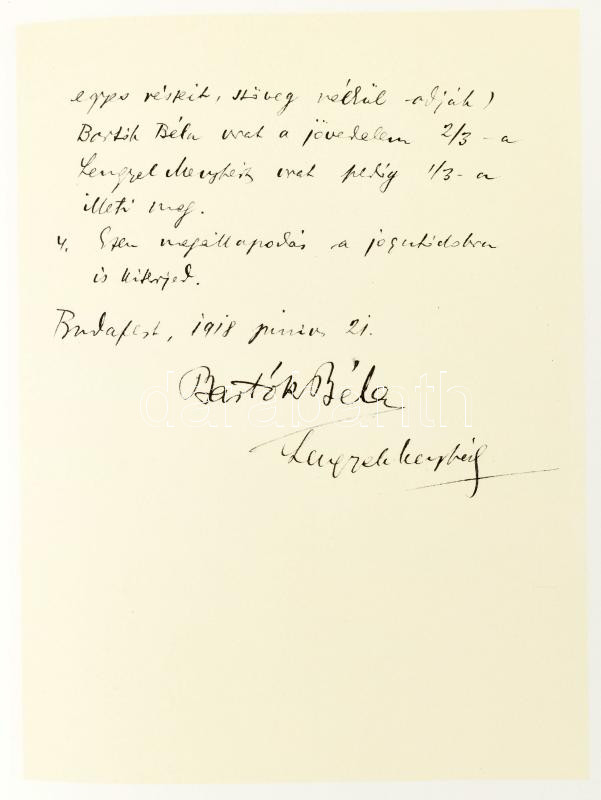 egyes részeit, szöveg nélkül adják)
Bartók Béla urat a jövedelem 2/3-a
Lengyel Menyhért urat pedig 1/3-a
illeti meg.
4. Ezen megállapodás a jogutódokra
is kiterjed.
Budapest, 1918 junius 21.
Bartók Béla
darabanth
Lengyel Menyhért